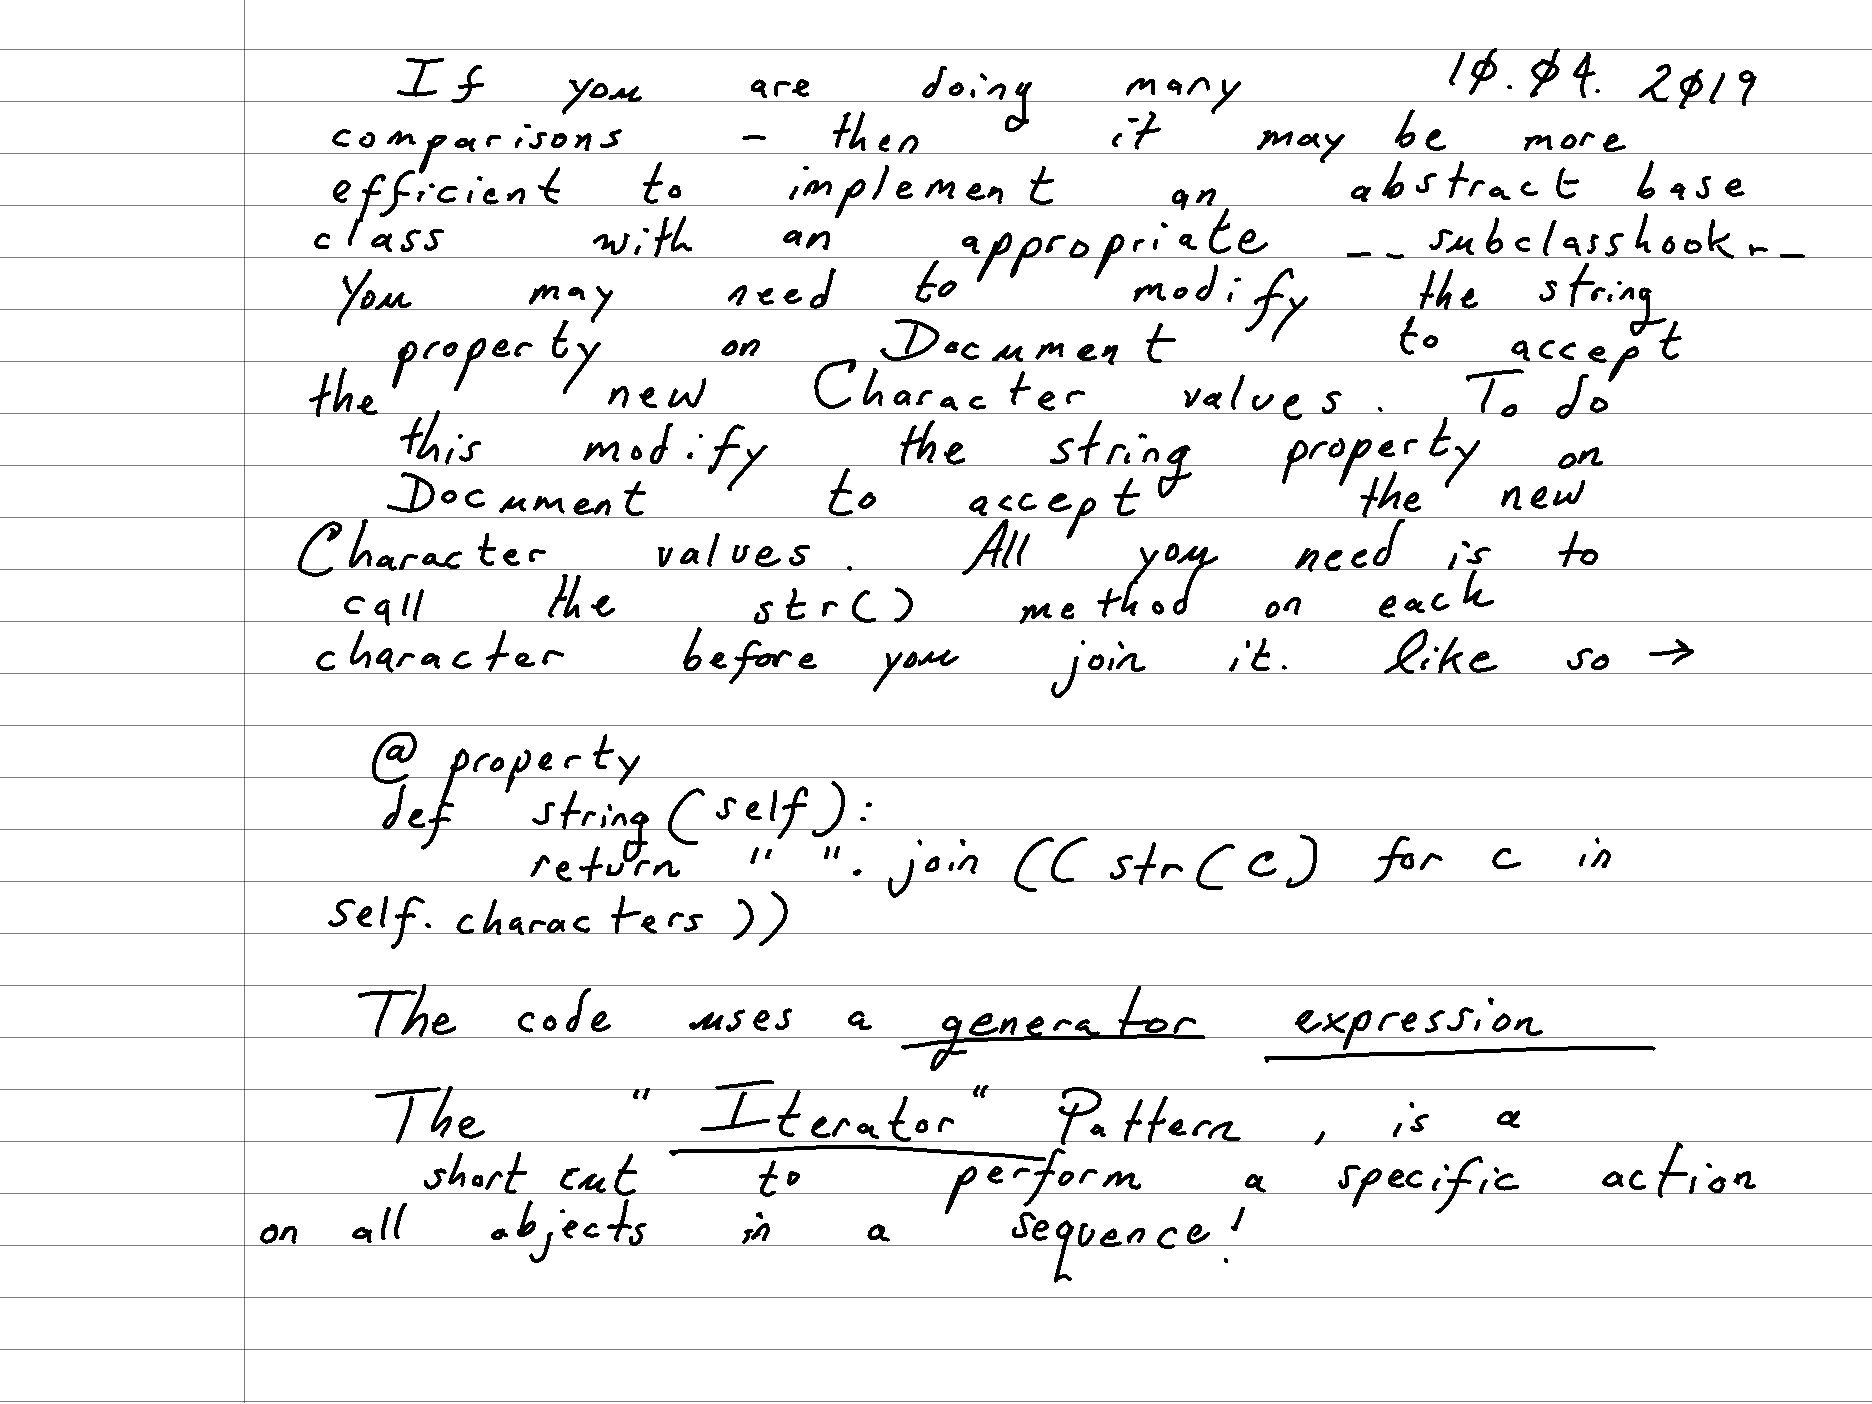 If you are doing many 10.04. 2019
comparisons - then it may be more
efficient to implement an abstract base
class with an appropriate __subclasshook__
You may need to modify the string
property on Document to accept
the new Character values. To do
this modify the string property on
Document to accept the new
Character values. All you need is to
call the str() method on each
character before you join it. like so →
@property
def string(self):
return " ". join ((str(c) for c in
self.characters))
The code uses a generator expression
The "Iterator" Pattern, is a
short cut to perform a specific action
on all objects in a sequence!